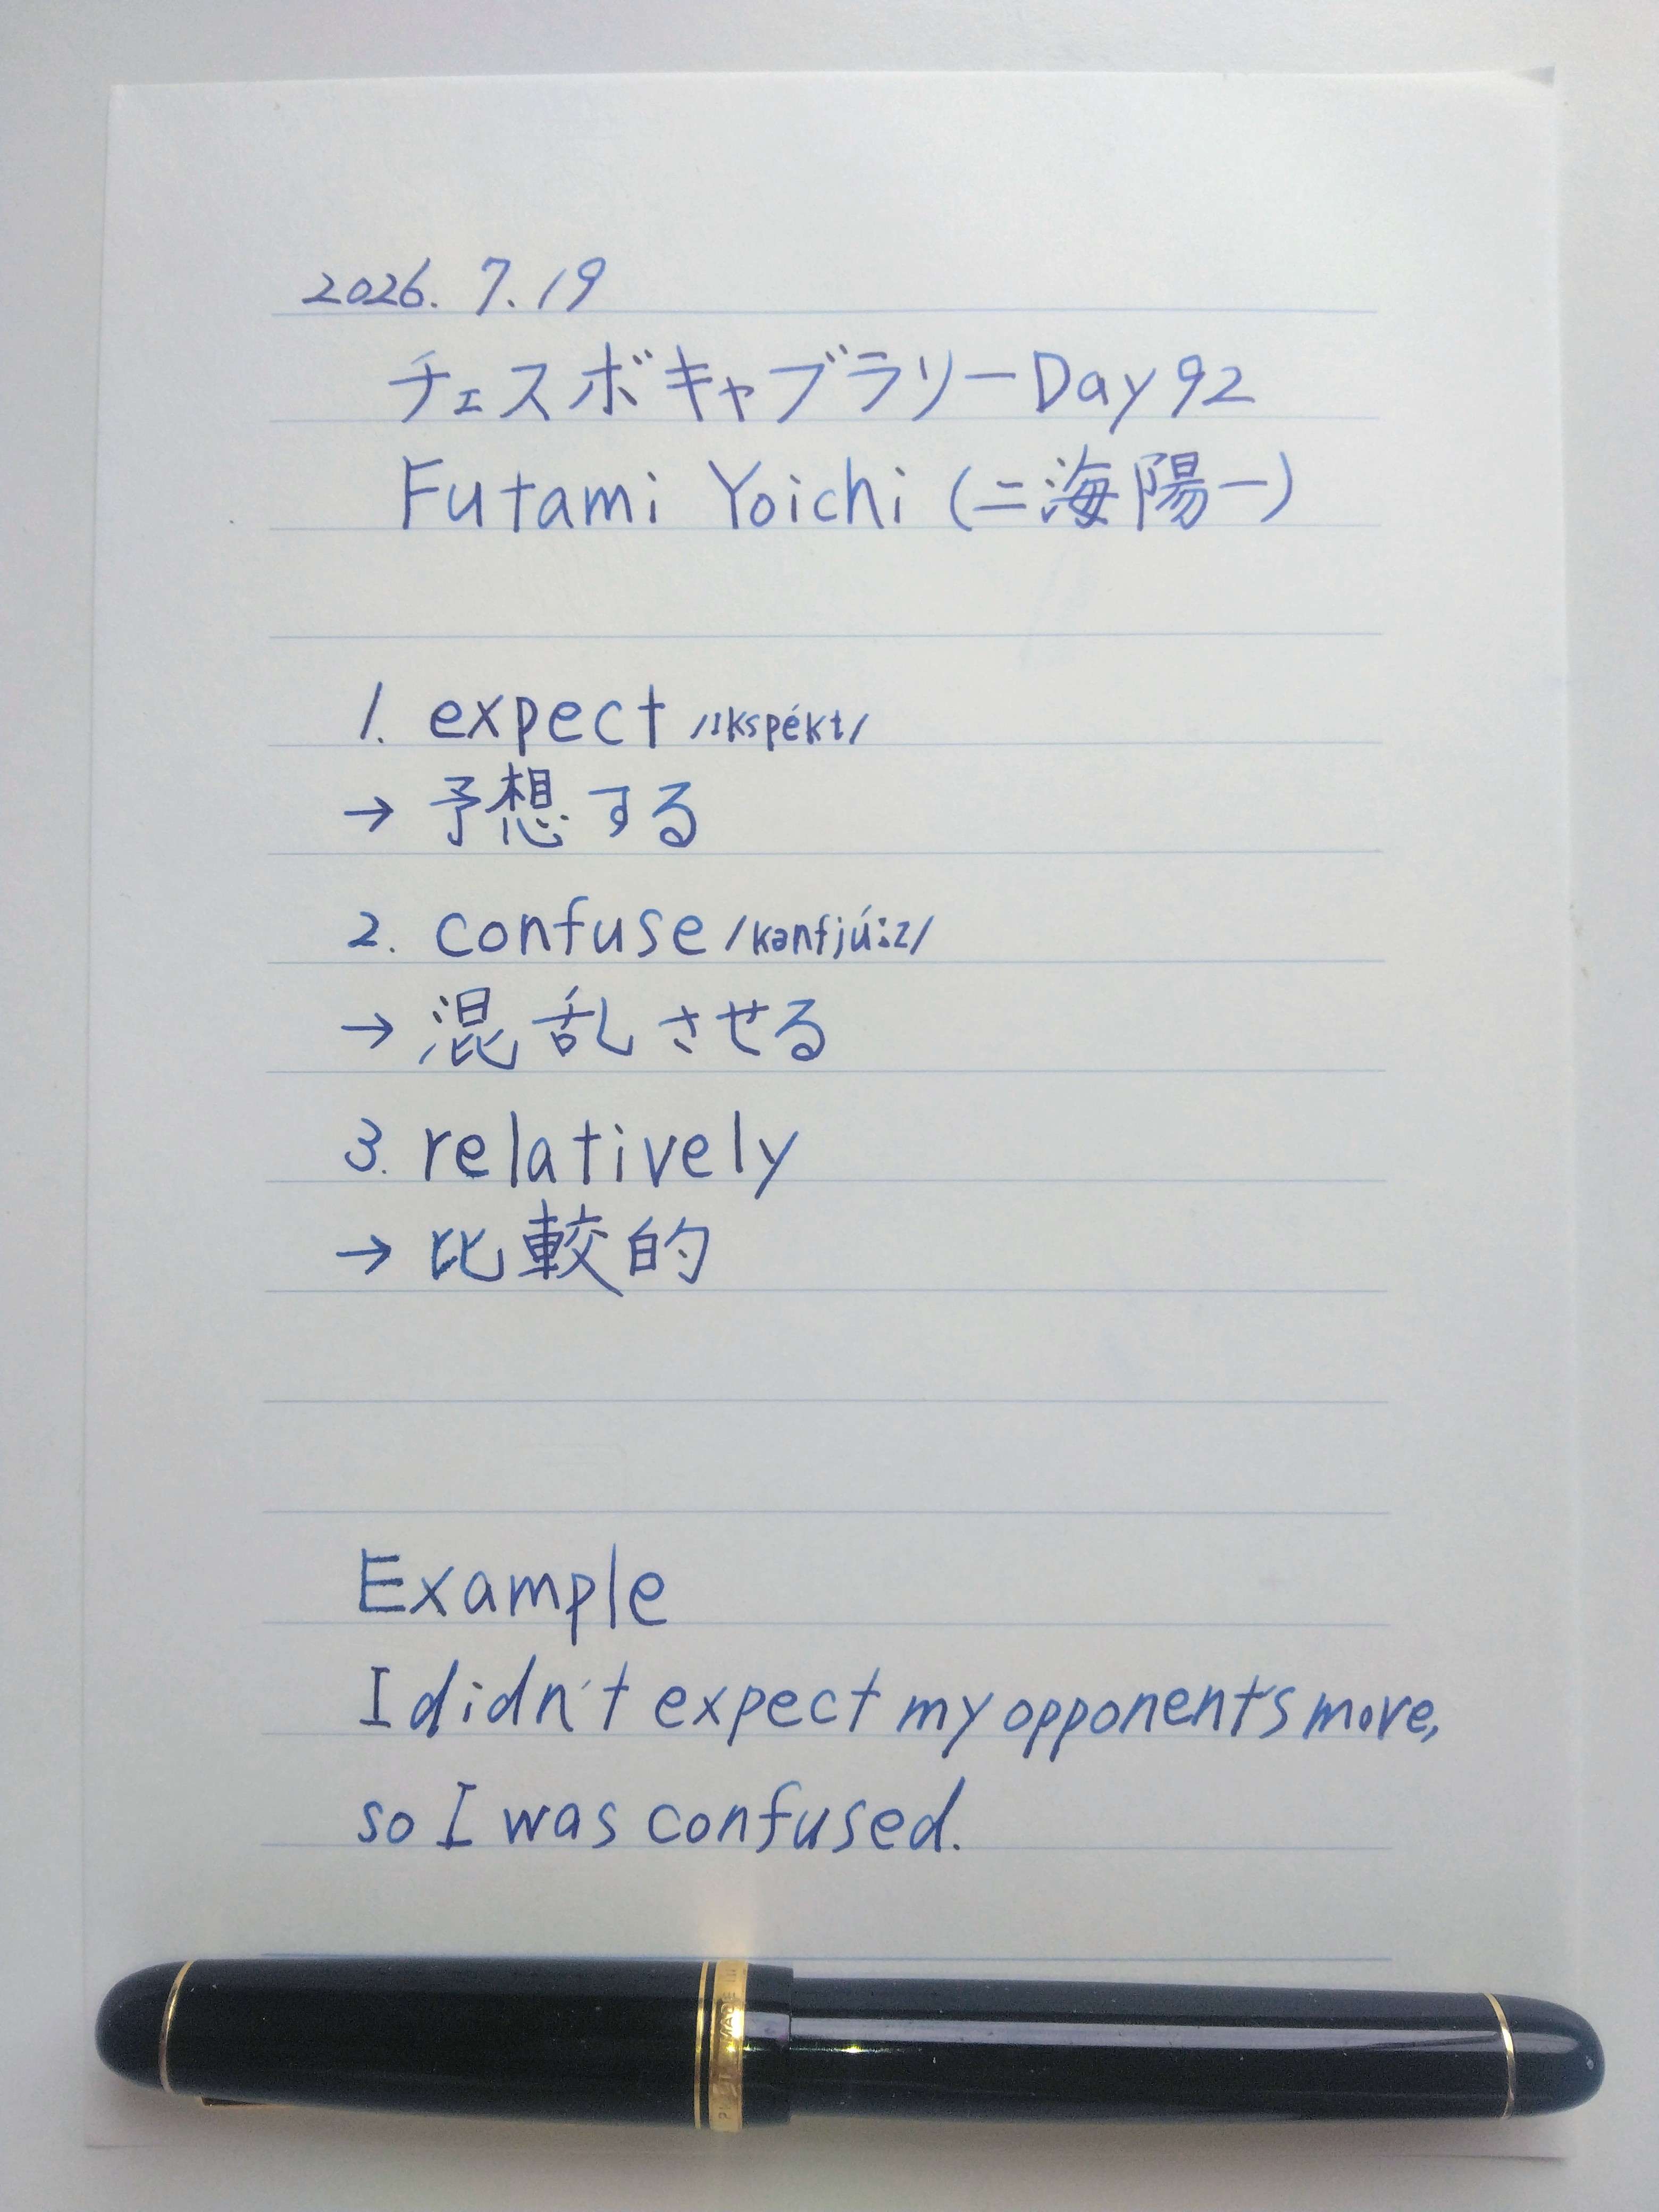 2026. 7. 19
チェスボキャブラリーDay 92
Futami Yoichi (二海陽一)
1. expect /ɪkspékt/
→ 予想する
2. confuse /kənfjúːz/
→ 混乱させる
3. relatively
→ 比較的
Example
I didn't expect my opponent's move,
so I was confused.
MADE